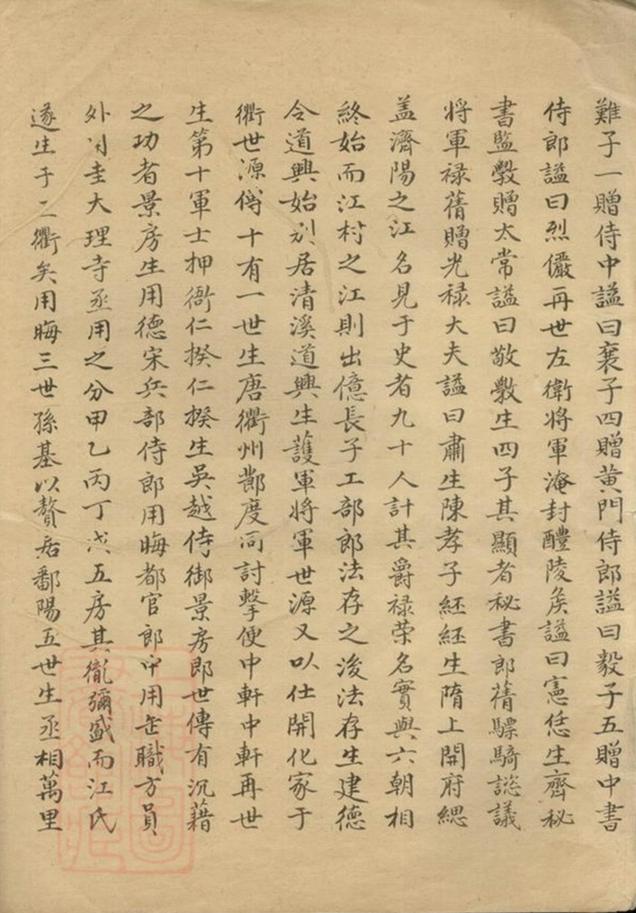 難子一贈侍中諡曰褒子四贈黃門侍郎諡曰毅子五贈中書
侍郎諡曰烈儼再世左衛將軍淹封醴陵矦諡曰憲恁生齊秘
書監斅贈太常諡曰敬斅生四子其顯者秘書郎蒨驃騎諮議
將軍祿蒨贈光祿大夫諡曰肅生陳孝子紑紑生隋上開府緫
盖濟陽之江名見于史者九十人計其爵祿荣名實與六朝相
終始而江村之江則出億長子工部郎法存之後法存生建德
令道興始別居清溪道興生護軍將軍世源又以仕開化家于
衢世源傳十有一世生唐衢州鄼度同討擊使中軒中軒再世
生第十軍士押衙仁揆仁揆生吳越侍御景房即世傳有沉藉
之功者景房生用德宋兵部侍郎用晦都官郎中用缶職方員
外用圭大理寺丞用之分甲乙丙丁戊五房其後彌盛而江氏
遂生于二衢矣用晦三世孫基以贅居鄱陽五世生丞相萬里